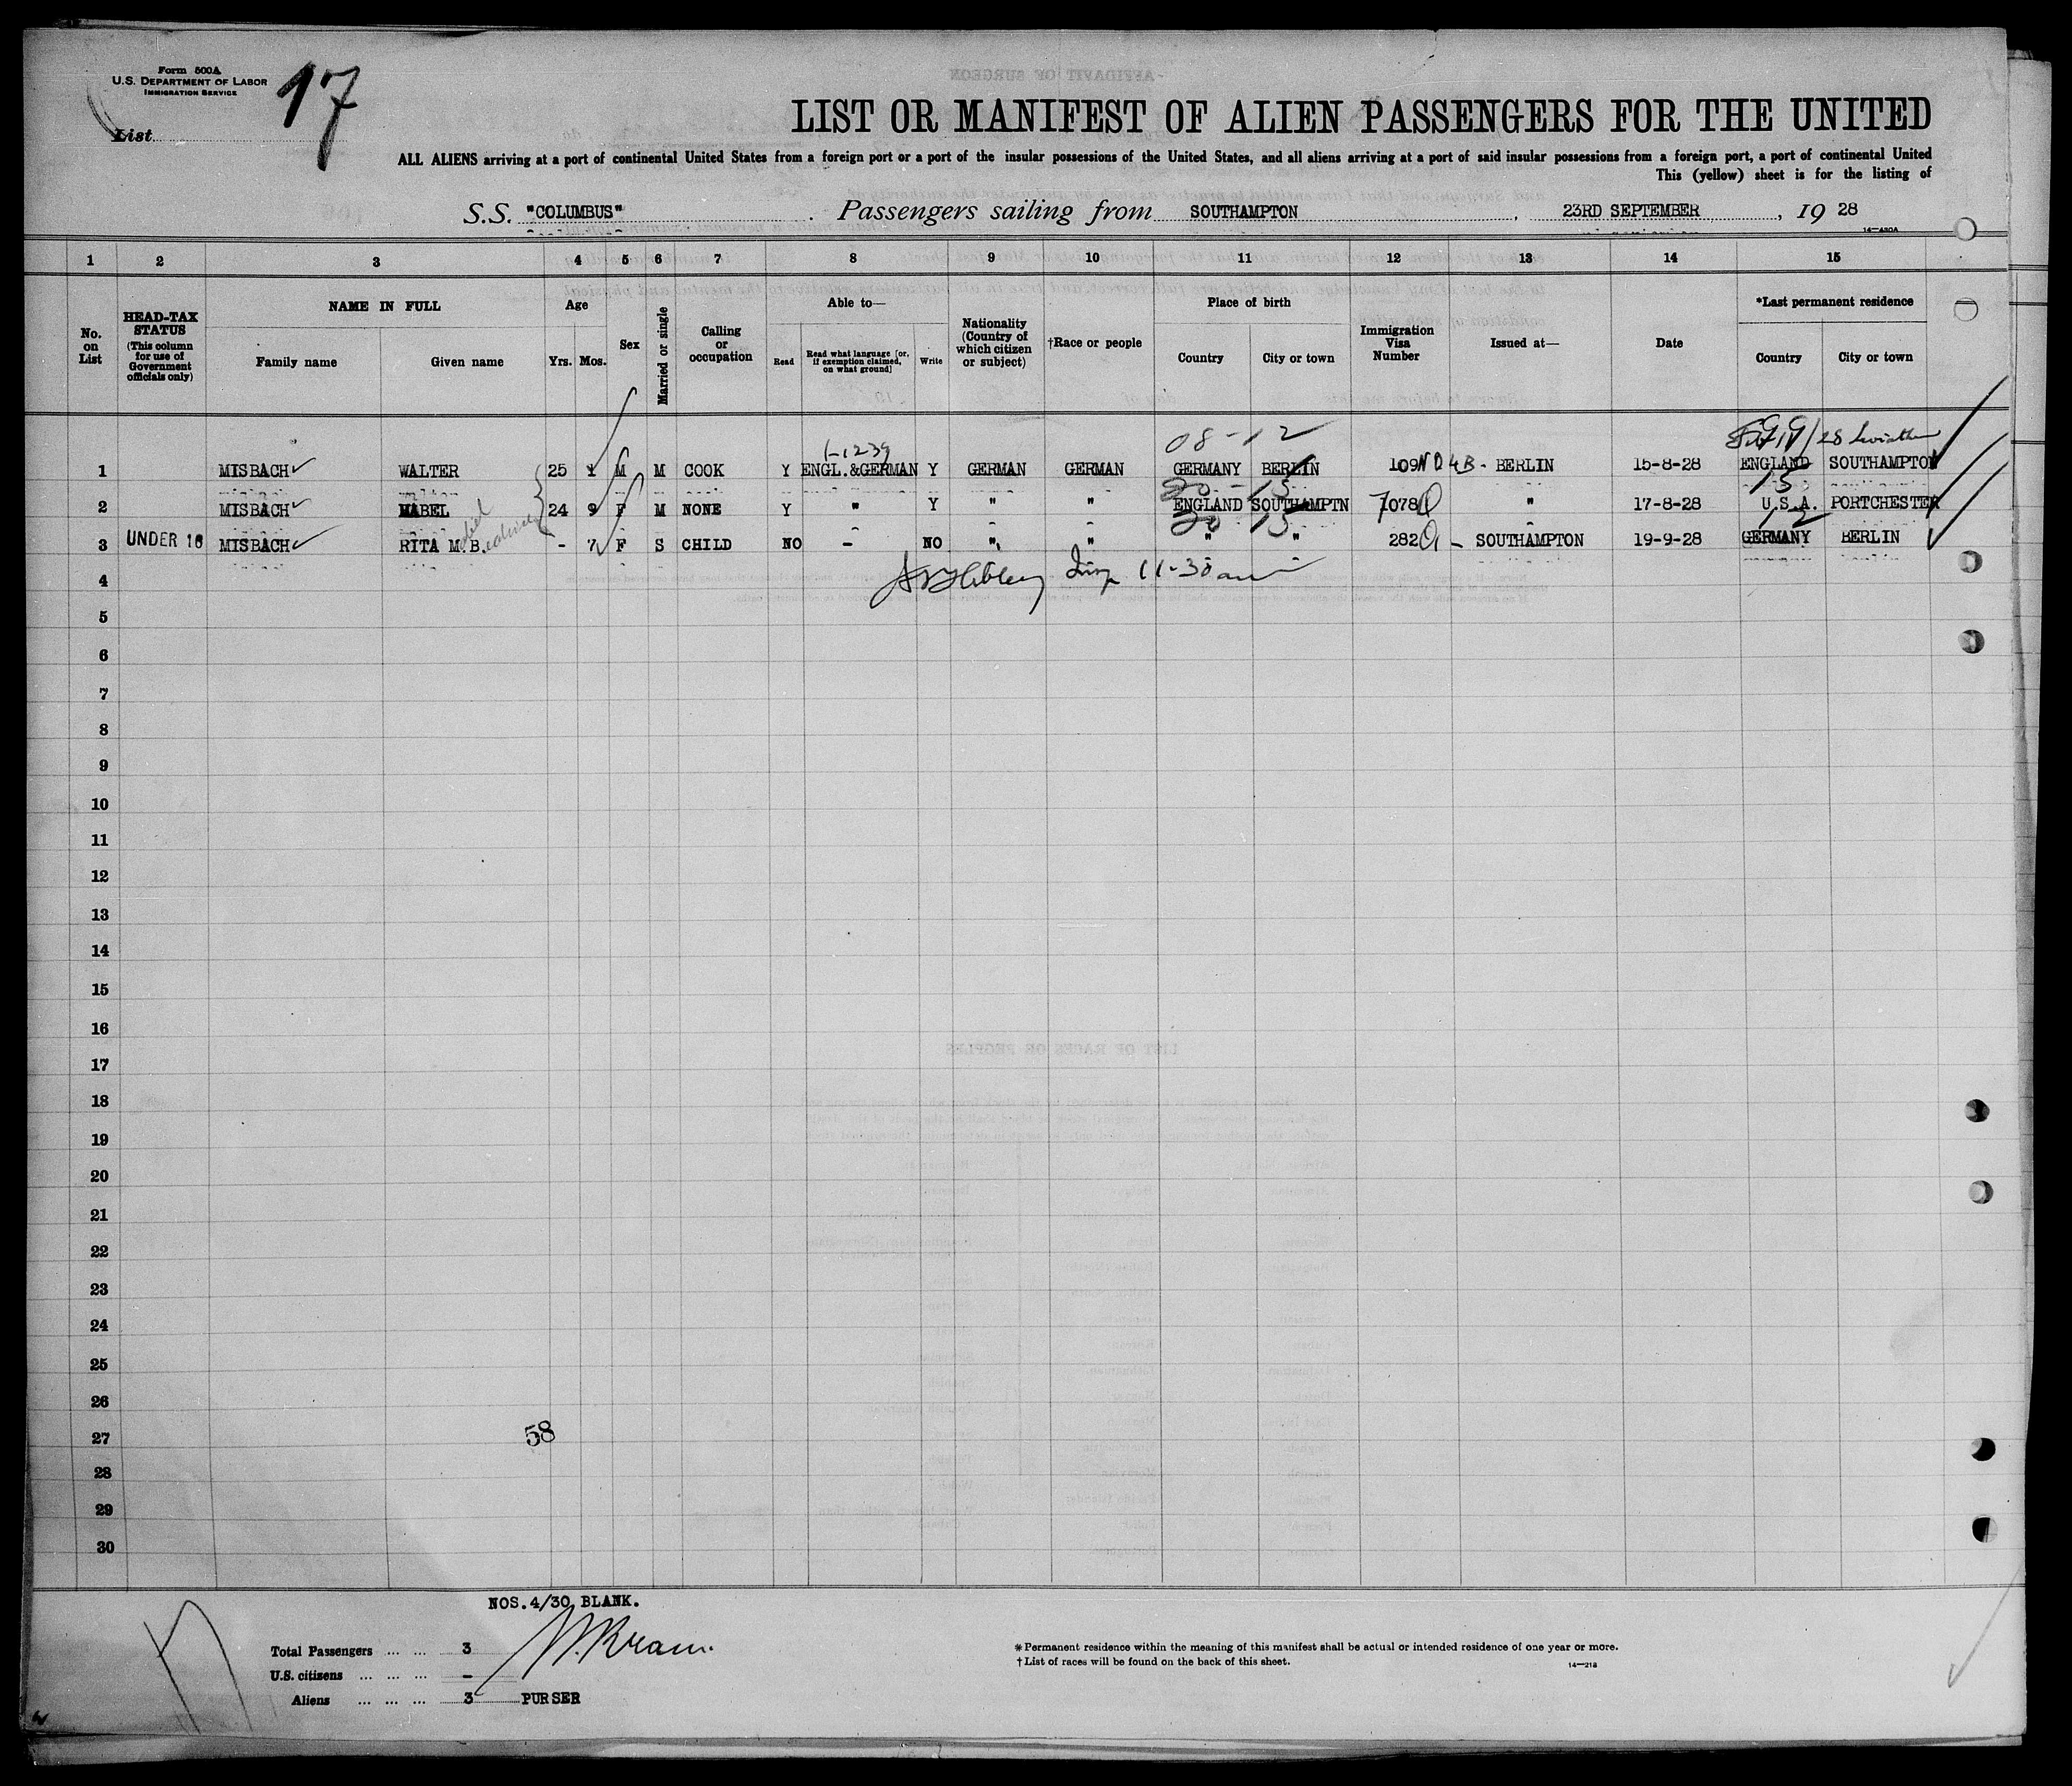 Form 500A
U.S. DEPARTMENT OF LABOR
IMMIGRATION SERVICE
List 17
LIST OR MANIFEST OF ALIEN PASSENGERS FOR THE UNITED
ALL ALIENS arriving at a port of continental United States from a foreign port or a port of the insular possessions of the United States, and all aliens arriving at a port of said insular possessions from a foreign port, a port of continental United
This (yellow) sheet is for the listing of
S.S. "COLUMBUS" Passengers sailing from SOUTHAMPTON, 23RD SEPTEMBER, 19 28
14-480A
1 2 3 4 5 6 7 8 9 10 11 12 13 14 15
No. on List
HEAD-TAX STATUS (This column for use of Government officials only)
NAME IN FULL
Family name Given name
Age
Yrs. Mos.
Sex
Married or single
Calling or occupation
Able to—
Read Read what language [or, if exemption claimed, on what ground] Write
Nationality (Country of which citizen or subject)
†Race or people
Place of birth
Country City or town
Immigration Visa Number
Issued at—
Date
*Last permanent residence
Country City or town
1-1239 08-12
1 MISBACH WALTER 25 1 M M COOK Y ENGL.&GERMAN Y GERMAN GERMAN GERMANY BERLIN 109 NQ4B - BERLIN 15-8-28 ENGLAND SOUTHAMPTON
20 - 15 15
2 MISBACH MABEL 24 9 F M NONE Y " Y " " ENGLAND SOUTHAMPTN 7078 Q " 17-8-28 U.S.A. PORTCHESTER
20 15 12
UNDER 16
3 MISBACH RITA M.B. - 7 F S CHILD NO - NO " " " " 282 Q - SOUTHAMPTON 19-9-28 GERMANY BERLIN
11-30 am
4
5
6
7
8
9
10
11
12
13
14
15
16
17
18
19
20
21
22
23
24
25
26
27
58
28
29
30
NOS.4/30 BLANK.
Total Passengers ... ... 3
U.S. citizens ... ... ... -
Aliens ... ... ... 3 PURSER
*Permanent residence within the meaning of this manifest shall be actual or intended residence of one year or more.
†List of races will be found on the back of this sheet.
14-218